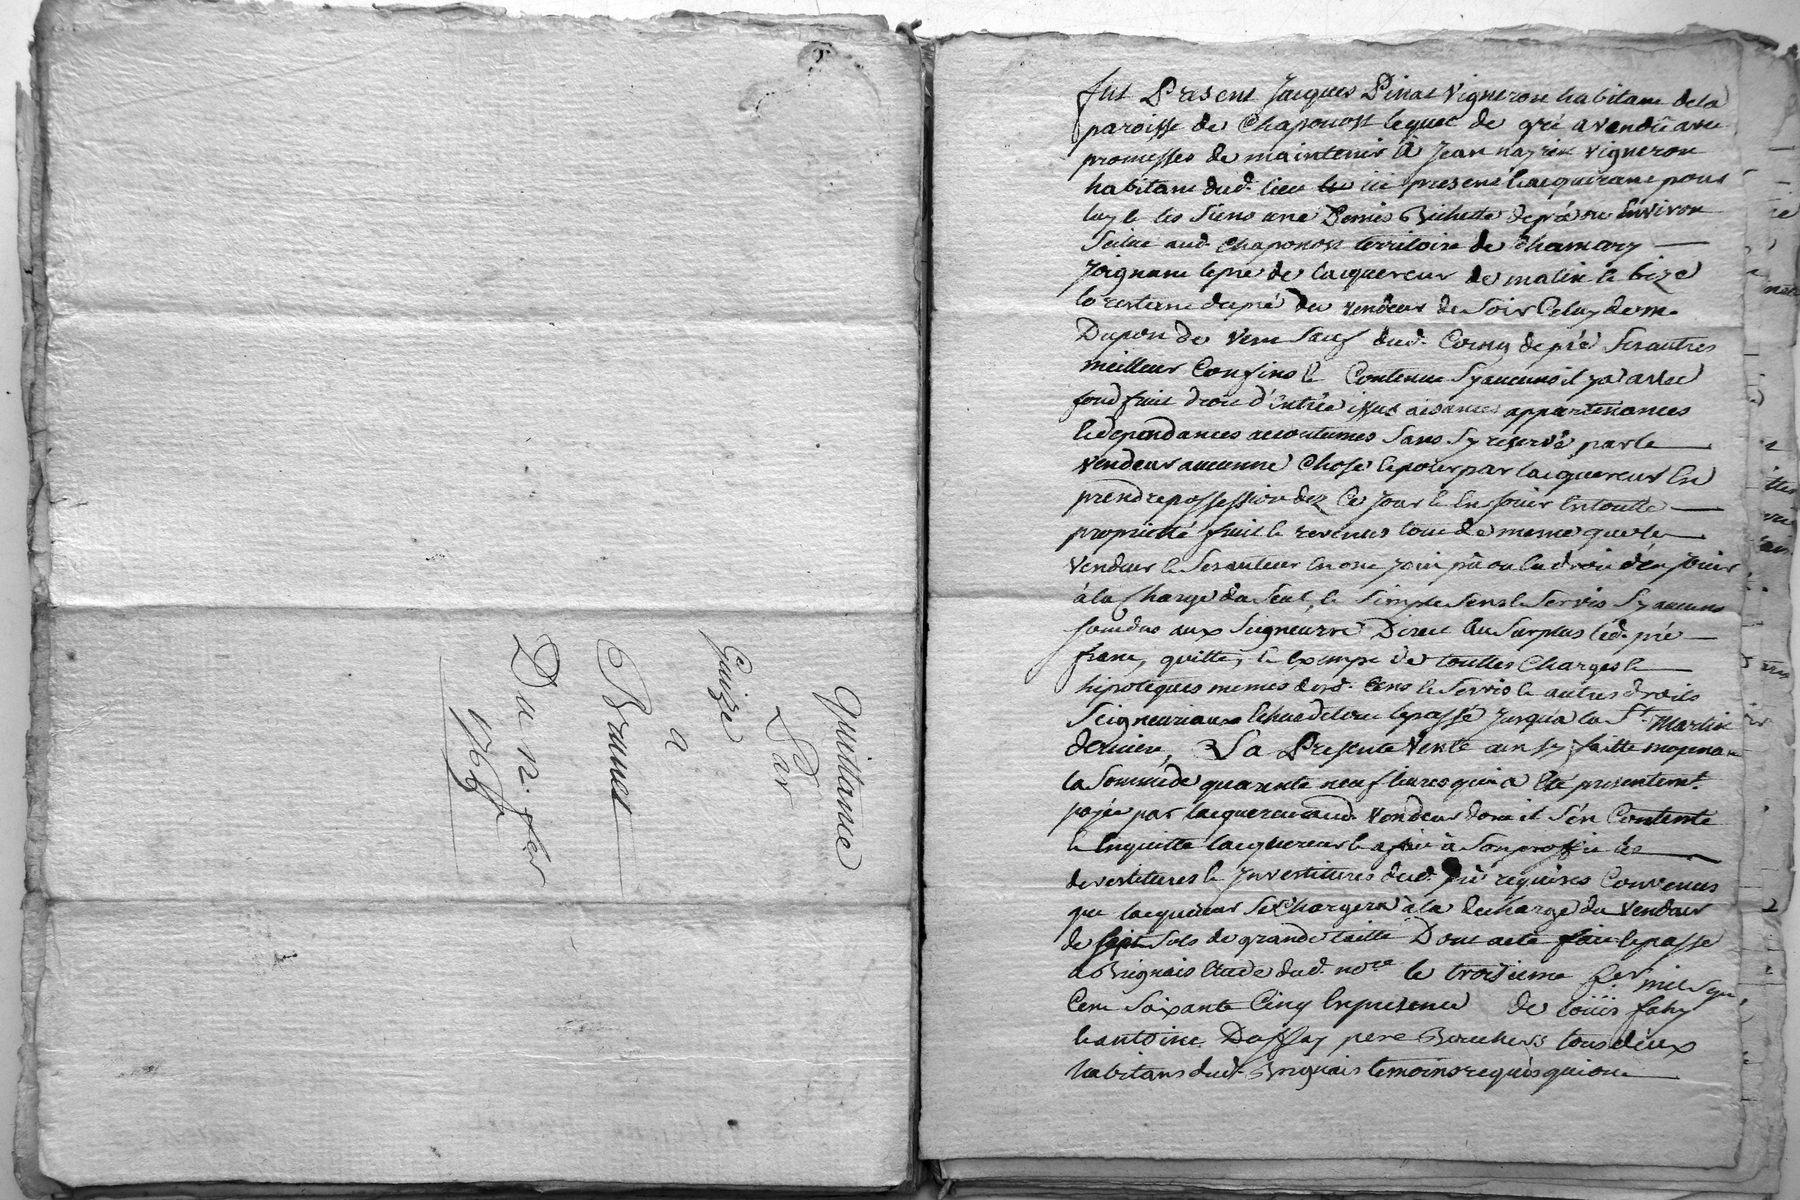 Quittance
Par
Guize
a
Brunet
Du 12. fer
1765
fut Present Jacques Pinat vigneron habitant de la
paroisse de Chaponost lequel de gré a vendu avec
promesses de maintenir A Jean nayrin vigneron
habitant dud. lieu ici present lacquerant pour
luy & les siens une Demie Bichette de pré ou Environ
Scitue aud. Chaponost territoire de Chamary
Joignant le pré de lacquereur de matin & bize
le restant du pré du vendeur de soir Celuy de mr
Dupon de vent sauf dud. Coing de pré ses autres
meilleur Confins & Contenue sy aucuns il y a avec
fond fruit droit d'entrée issue aisances appartenances
& dependances accoutumes sans sy reservé par le
vendeur aucunne Chose & pour par lacquereur En
prendre possession dez Ce jour & En jouir En toutte
proprietté fruit & revenus tout de meme que le
vendeur & ses auteur En ont joui pû ou eu droit d'en jouir
à la Charge du seul, & simple sens & servis sy aucuns
sont dus aux seigneurs Direct Au surplus led. pré
franc, quitte, & Exempt de touttes Charges &
hipoteques memes desd. Cens & servis & autres droits
Seigneuriaux Echus de tout le passé jusqu'a la St. Martin
derniere, La Presente Vente ainsy faitte moyenant
la Somme de quarente neuf livres qui a Eté presentemt.
payée par lacquereur aud. Vendeur dont il s'en Contente
& En quitte lacquereur & a fait à son proffit les
devestitures & Investitures dud. pré requises Convenus
que lacquereur se Chargera à la decharge du vendeur
de sept sols de grande taille Dont acte fait & passé
a Brignais Etude dud. nore le troisieme fer. mil sept
Cent soixante Cinq En presence de louis fahy
& antoine Dassay pere Bouchers tous deux
habitans dud. Brignais temoins requis qui ont